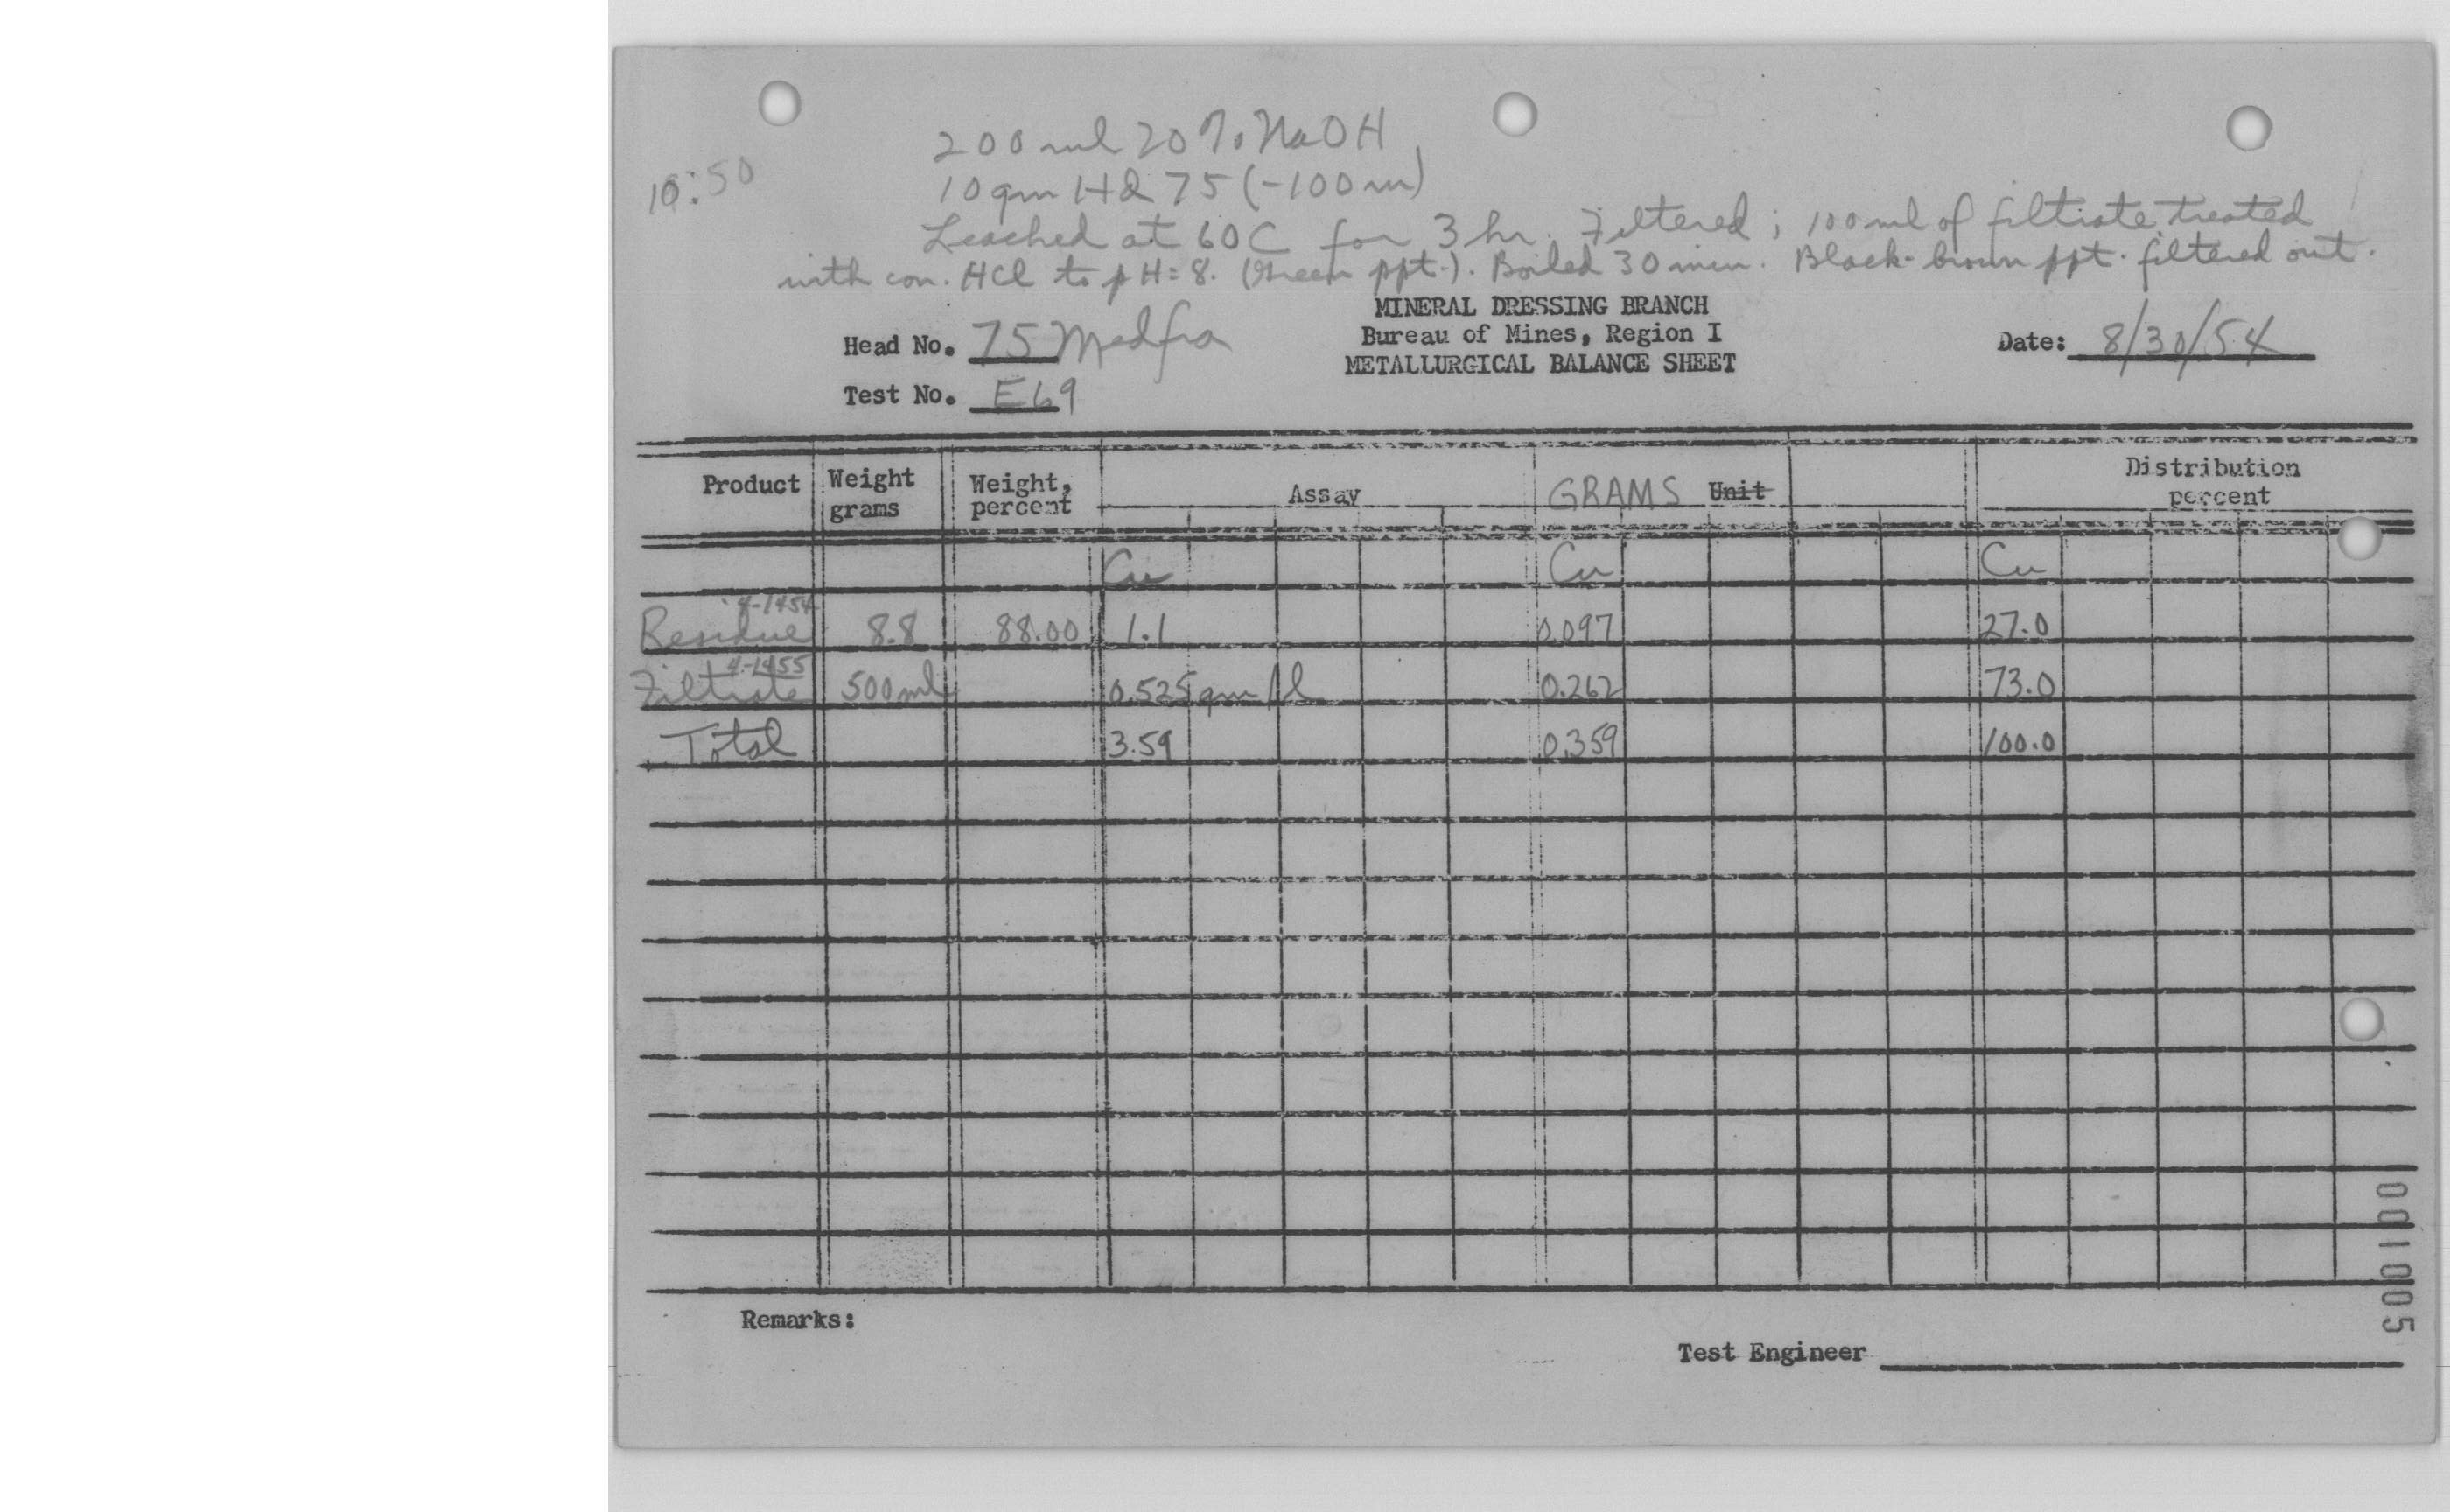 200 ml 20% NaOH
10:50
10 gm Hd 75 (-100 m)
Leached at 60 C for 3 hr. Filtered; 100 ml of filtrate treated
with con. HCl to pH=8. (Green ppt.). Boiled 30 min. Black-brown ppt. filtered out.
MINERAL DRESSING BRANCH
Bureau of Mines, Region I
METALLURGICAL BALANCE SHEET
Head No. 75 Medfra
Date: 8/30/54
Test No. E69
Product Weight grams Weight, percent Assay GRAMS Unit Distribution percent
Cu Cu Cu
4-1454
Residue 8.8 88.00 1.1 0.097 27.0
4-1455
Filtrate 500 ml 0.525 gm/l 0.262 73.0
Total 3.59 0.359 100.0
Remarks:
Test Engineer
001005